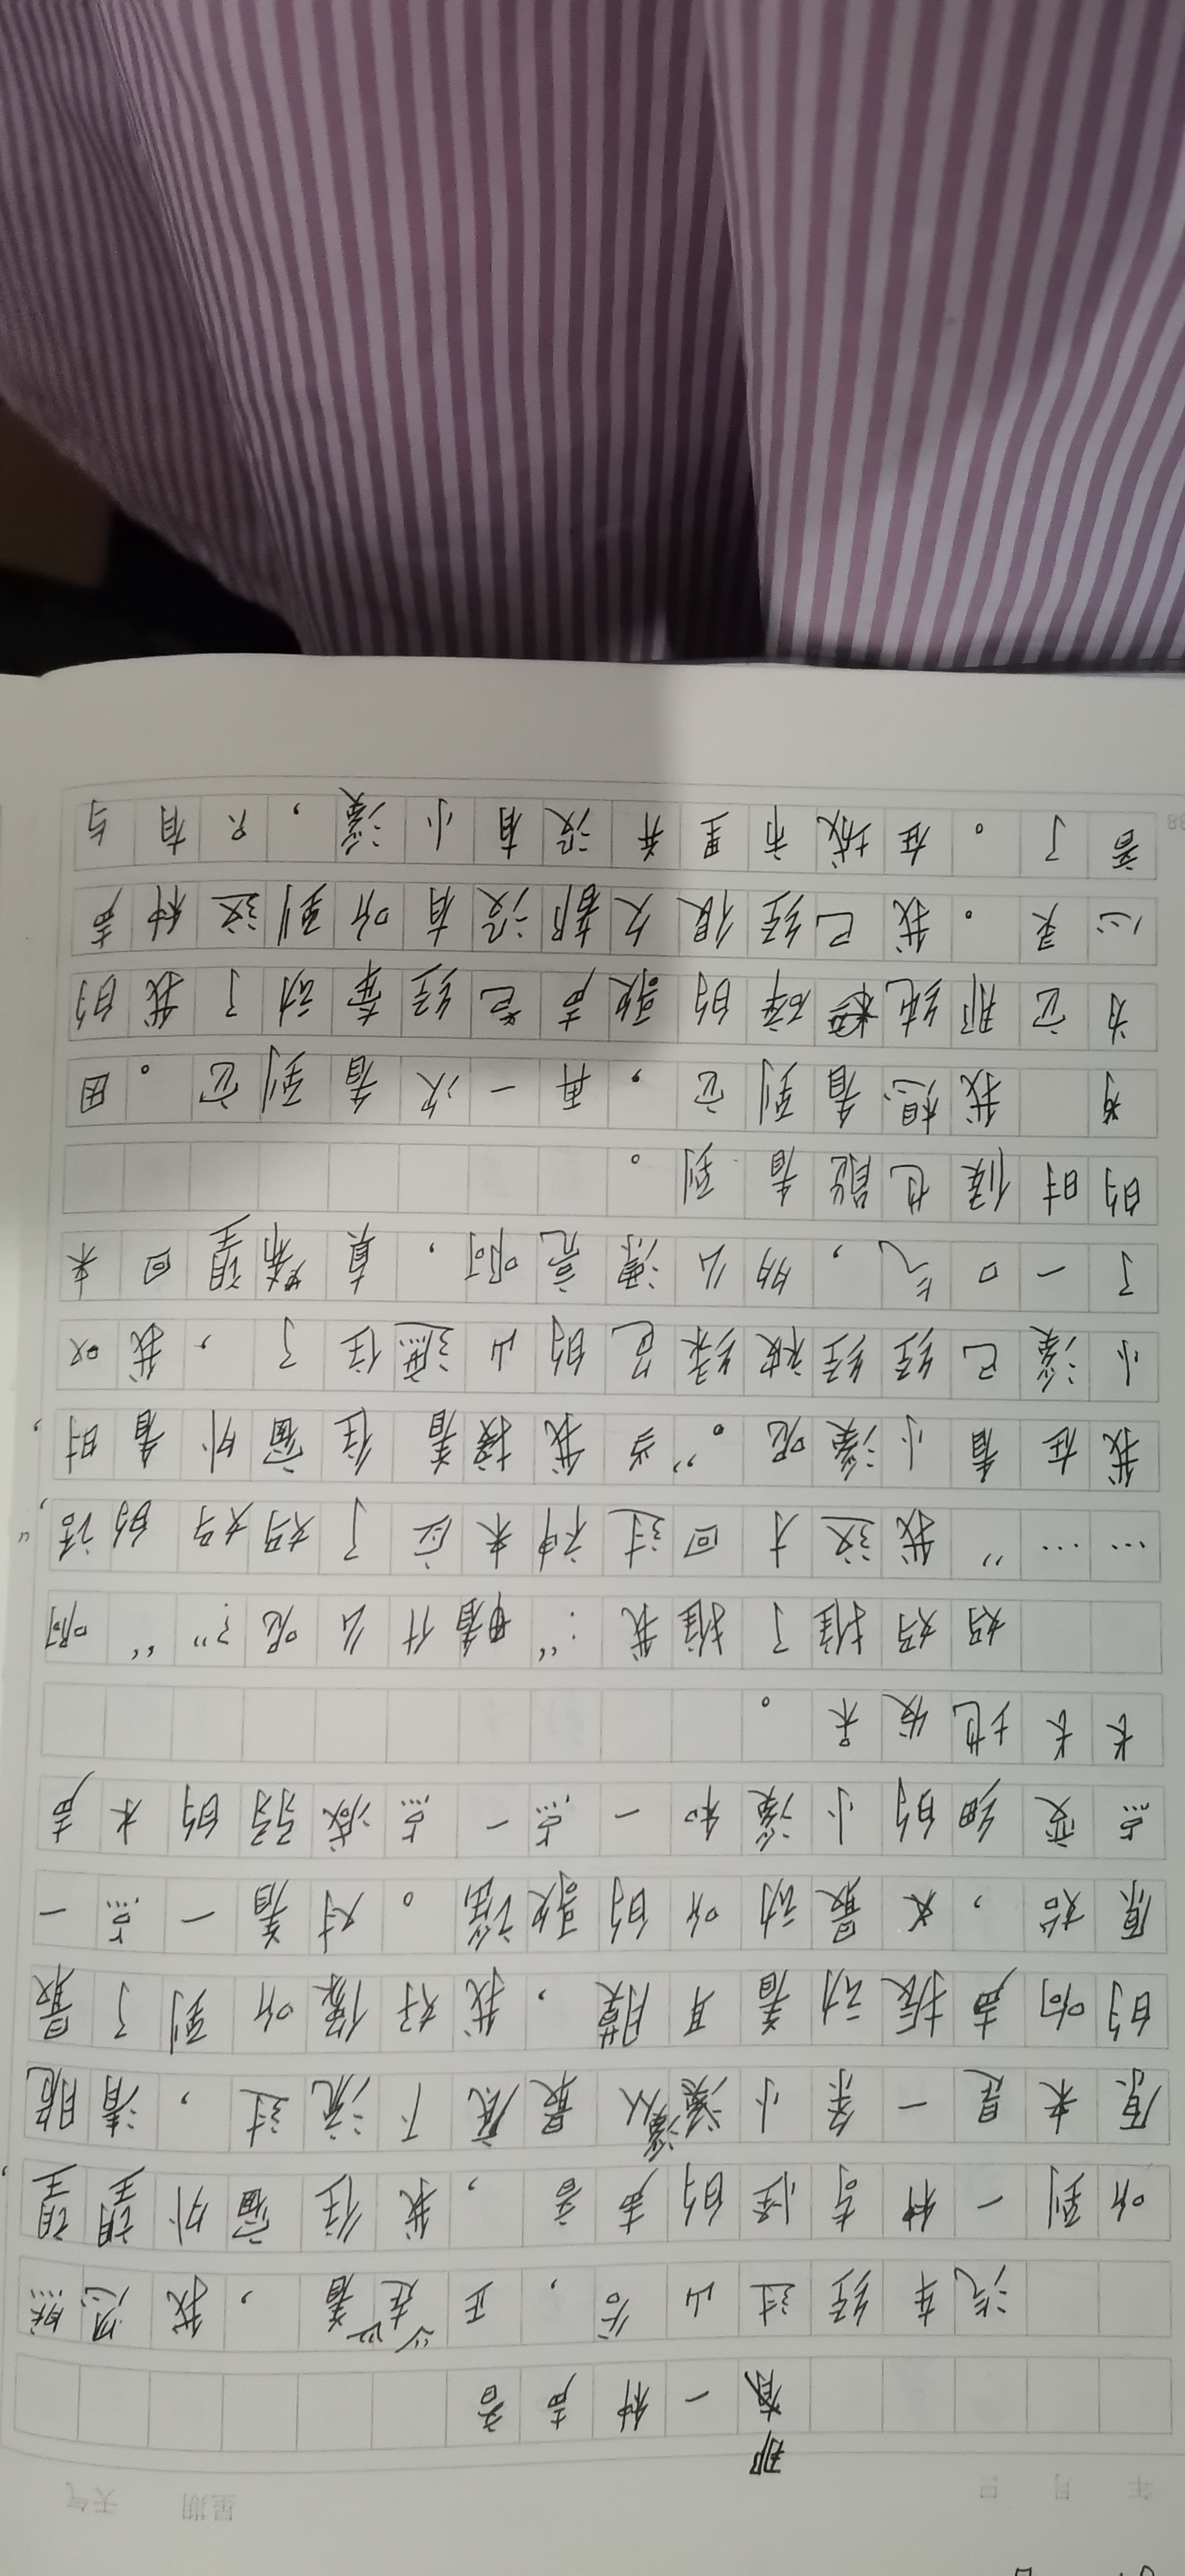 年 月 日 星期 天气
那一种声音
汽车经过山谷，正走着，我忽然
听到一种奇怪的声音，我往窗外望望，
原来是一条小溪从最底下流过，清脆
的响声振动着耳膜，我好像听到了最
原始，又最动听的歌谣。对着一点一
点变细的小溪和一点一点减弱的水声
长长地发呆。
妈妈推了推我：“看什么呢？”“啊
……”我这才回过神来应了妈妈的话，“
我在看小溪呢。”当我接着往窗外看时，
小溪已经经被绿色的山遮住了，我叹
了一口气，多么漂亮啊，真希望回来
的时候也能看到。
我想看到它，再一次看到它。因
为它那纯粹的歌声已经牵动了我的
心灵。我已经很久都没有听到这种声
音了。在城市里并没有小溪，只有与
38